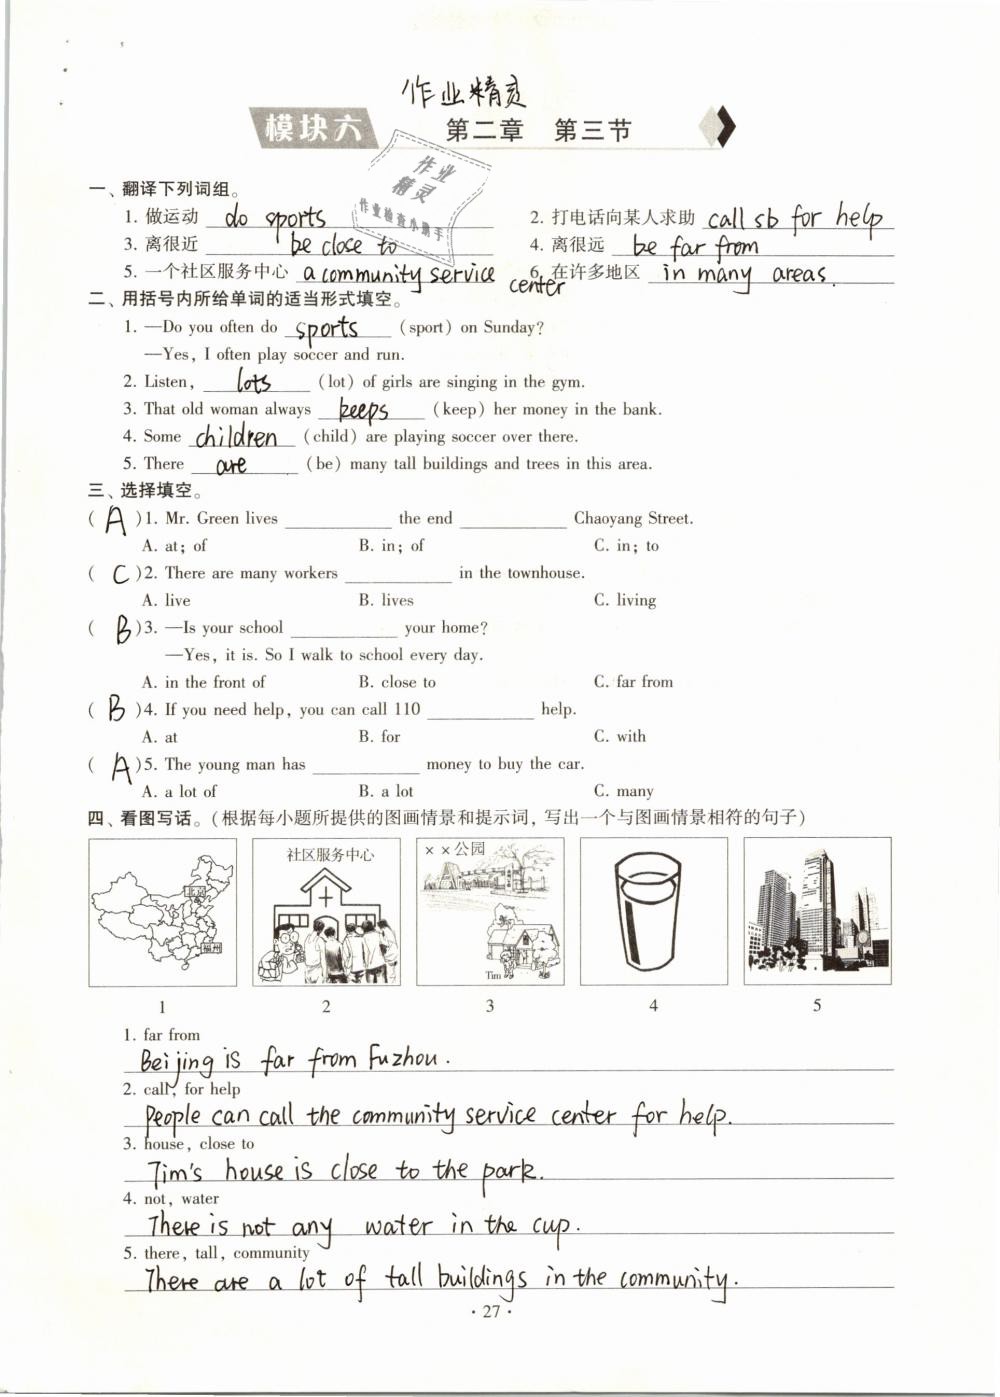 作业精灵
模块六 第二章 第三节
作业
精灵
作业检查小助手
一、翻译下列词组。
1. 做运动 do sports 2. 打电话向某人求助 call sb for help
3. 离很近 be close to 4. 离很远 be far from
5. 一个社区服务中心 a community service center 6. 在许多地区 in many areas.
二、用括号内所给单词的适当形式填空。
1. —Do you often do sports (sport) on Sunday?
—Yes, I often play soccer and run.
2. Listen, lots (lot) of girls are singing in the gym.
3. That old woman always keeps (keep) her money in the bank.
4. Some children (child) are playing soccer over there.
5. There are (be) many tall buildings and trees in this area.
三、选择填空。
( A )1. Mr. Green lives ________ the end ________ Chaoyang Street.
A. at; of B. in; of C. in; to
( C )2. There are many workers ________ in the townhouse.
A. live B. lives C. living
( B )3. —Is your school ________ your home?
—Yes, it is. So I walk to school every day.
A. in the front of B. close to C. far from
( B )4. If you need help, you can call 110 ________ help.
A. at B. for C. with
( A )5. The young man has ________ money to buy the car.
A. a lot of B. a lot C. many
四、看图写话。(根据每小题所提供的图画情景和提示词，写出一个与图画情景相符的句子)
北京
福州
社区服务中心
××公园
Tim
1 2 3 4 5
1. far from
Beijing is far from Fuzhou.
2. call, for help
People can call the community service center for help.
3. house, close to
Tim's house is close to the park.
4. not, water
There is not any water in the cup.
5. there, tall, community
There are a lot of tall buildings in the community.
· 27 ·